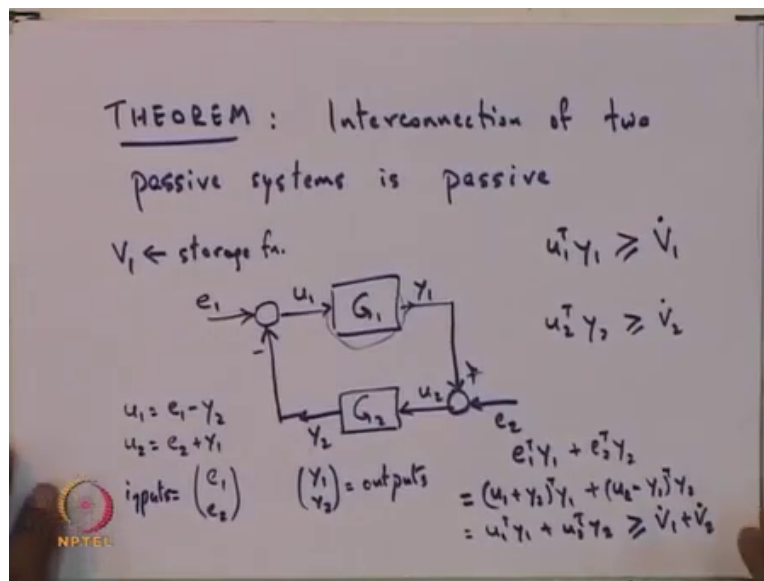 THEOREM : Interconnection of two
passive systems is passive
V₁ ← storage fn.
u₁ᵀ y₁ ≥ V̇₁
u₂ᵀ y₂ ≥ V̇₂
e₁ u₁ G₁ y₁
- +
y₂ G₂ u₂ e₂
u₁ = e₁ - y₂
u₂ = e₂ + y₁
inputs = (e₁ e₂) (y₁ y₂) = outputs
e₁ᵀ y₁ + e₂ᵀ y₂
= (u₁ + y₂)ᵀ y₁ + (u₂ - y₁)ᵀ y₂
= u₁ᵀ y₁ + u₂ᵀ y₂ ≥ V̇₁ + V̇₂
NPTEL